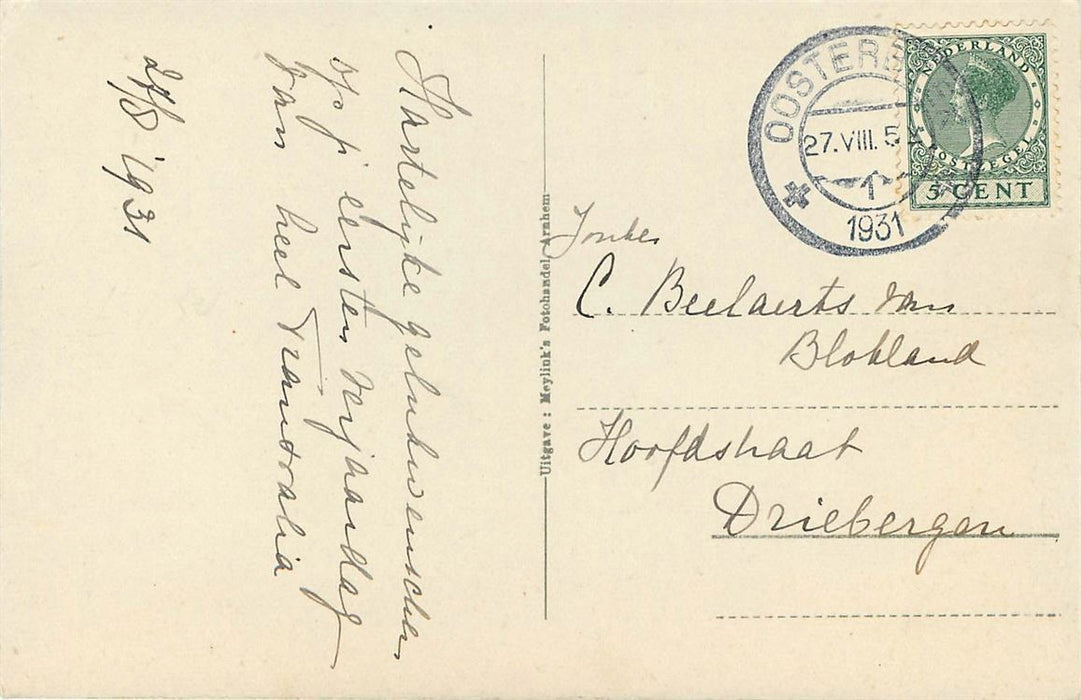 Hartelijke gelukwenschen
op je eersten verjaardag
van heel Transvalia
27/8 '1931
Uitgave : Meylink's Fotohandel, Arnhem
OOSTERB
27.VIII.5
1
1931
NEDERLAND
POSTZEGEL
5 CENT
Jonker
C. Beelaerts van
Blokland
Hoofdstraat
Driebergen